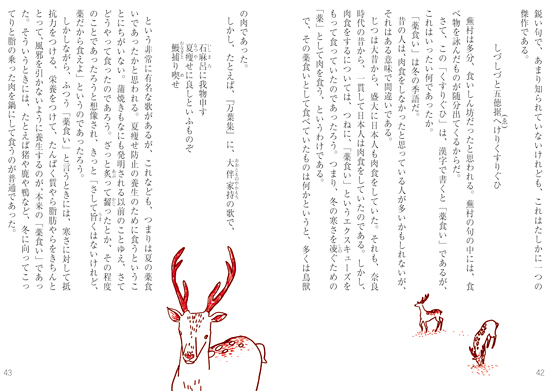 鋭い句で、あまり知られていないけれども、これはたしかに一つの
傑作である。
しづしづと五徳据へけりくすりぐひ
(ゑ)
蕪村は多分、食いしん坊だったと思われる。蕪村の句の中には、食
べ物を詠んだものが随分出てくるからだ。
さて、この「くすりぐひ」は、漢字で書くと「薬食い」であるが、
これはいったい何であったか。
「薬食い」は冬の季語だ。
昔の人は、肉食をしなかったと思っている人が多いかもしれないが、
それはある意味で間違いである。
じつは大昔から、盛んに日本人も肉食をしていた。それも、奈良
時代の昔から、一貫して日本人は肉食をしていたのである。しかし、
肉食をするについては、つねに、「薬食い」というエクスキューズを
もって食っていたのであったろう。つまり、冬の寒さを凌ぐための
「薬」として肉を食う、というわけである。
で、その薬食いとして食べていたものは何かというと、多くは鳥獣
42
の肉であった。
しかし、たとえば、『万葉集』に、大伴家持の歌で、
石麻呂に我物申す
夏痩せに良しといふものぞ
鰻捕り喫せ
という非常に有名な歌があるが、これなども、つまりは夏の薬食
いであったかと思われる。夏痩せ防止の養生のために食うというこ
とにちがいない。蒲焼きもなにも発明される以前のことゆえ、さて
どうやって食ったのであろう。ざっと炙って齧ったとか、その程度
のことであったろうと想像され、きっと「さして旨くはないけれど、
薬だから食えよ」というのであったろう。
しかしながら、ふつう「薬食い」と言うときには、寒さに対して抵
抗力をつける、栄養をつけて、たんぱく質やら脂肪やらをきちんと
とって、風邪を引かないように養生するのが、本来の「薬食い」であっ
た。そういうときには、たとえば猪や鹿や鴨など、冬に向ってこっ
てりと脂の乗った肉を鍋にして食うのが普通であった。
43